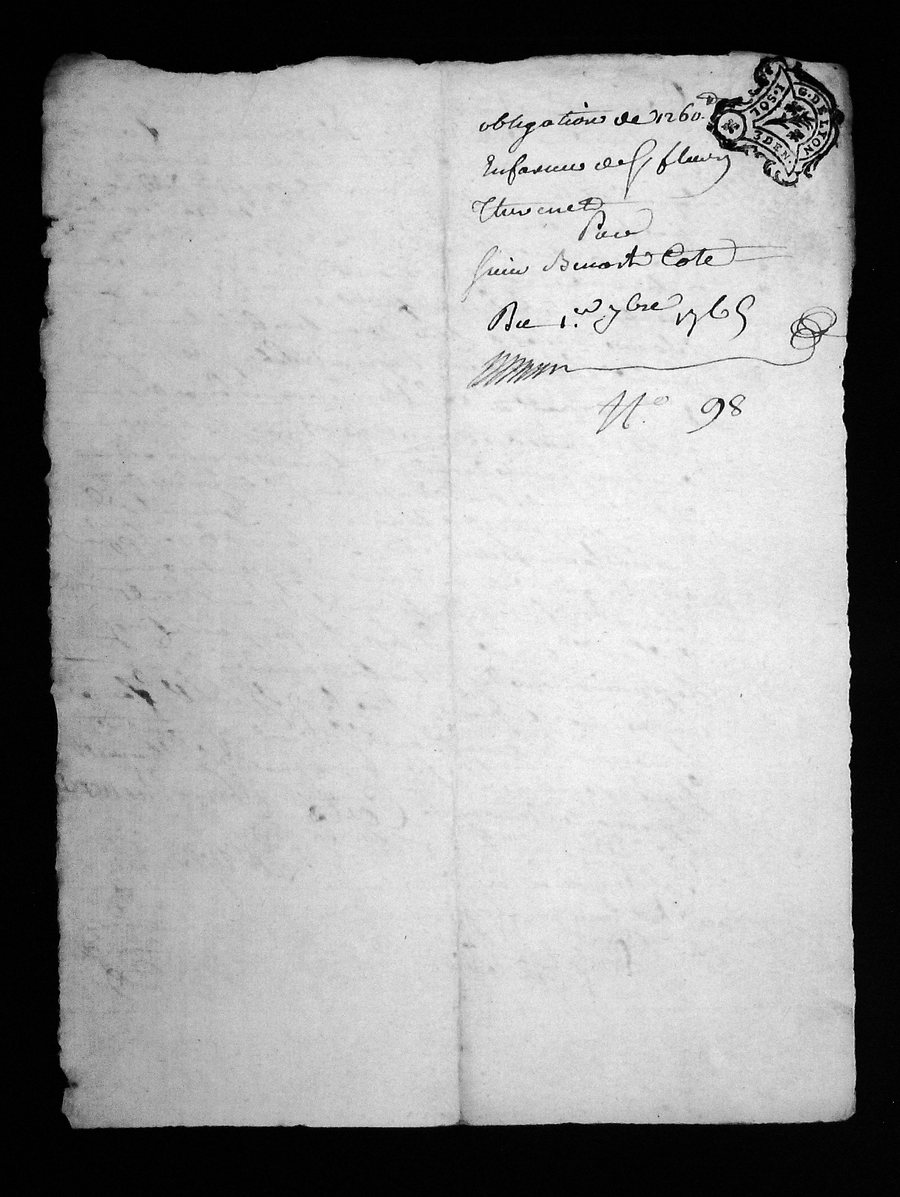 obligation de 1260
En faveur de Sr fleury
Thevenet
Par
Benoit Cote
Du 1.er 7bre 1765
N.o 98
G. DE LYON
1. SOL
3 DEN.